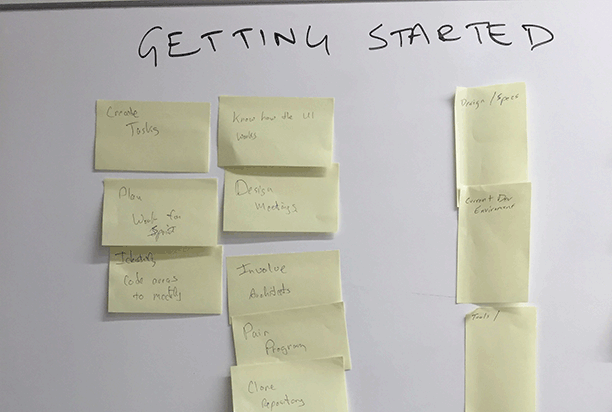 GETTING STARTED
Create
Tasks
Plan
Work for
Sprint
Identify
Code areas
to modify
Know how the UI
works
Design
Meetings
Involve
Architects
Pair
Program
Clone
Repository
Design / Specs
Current Dev
Enviroment
Tools /